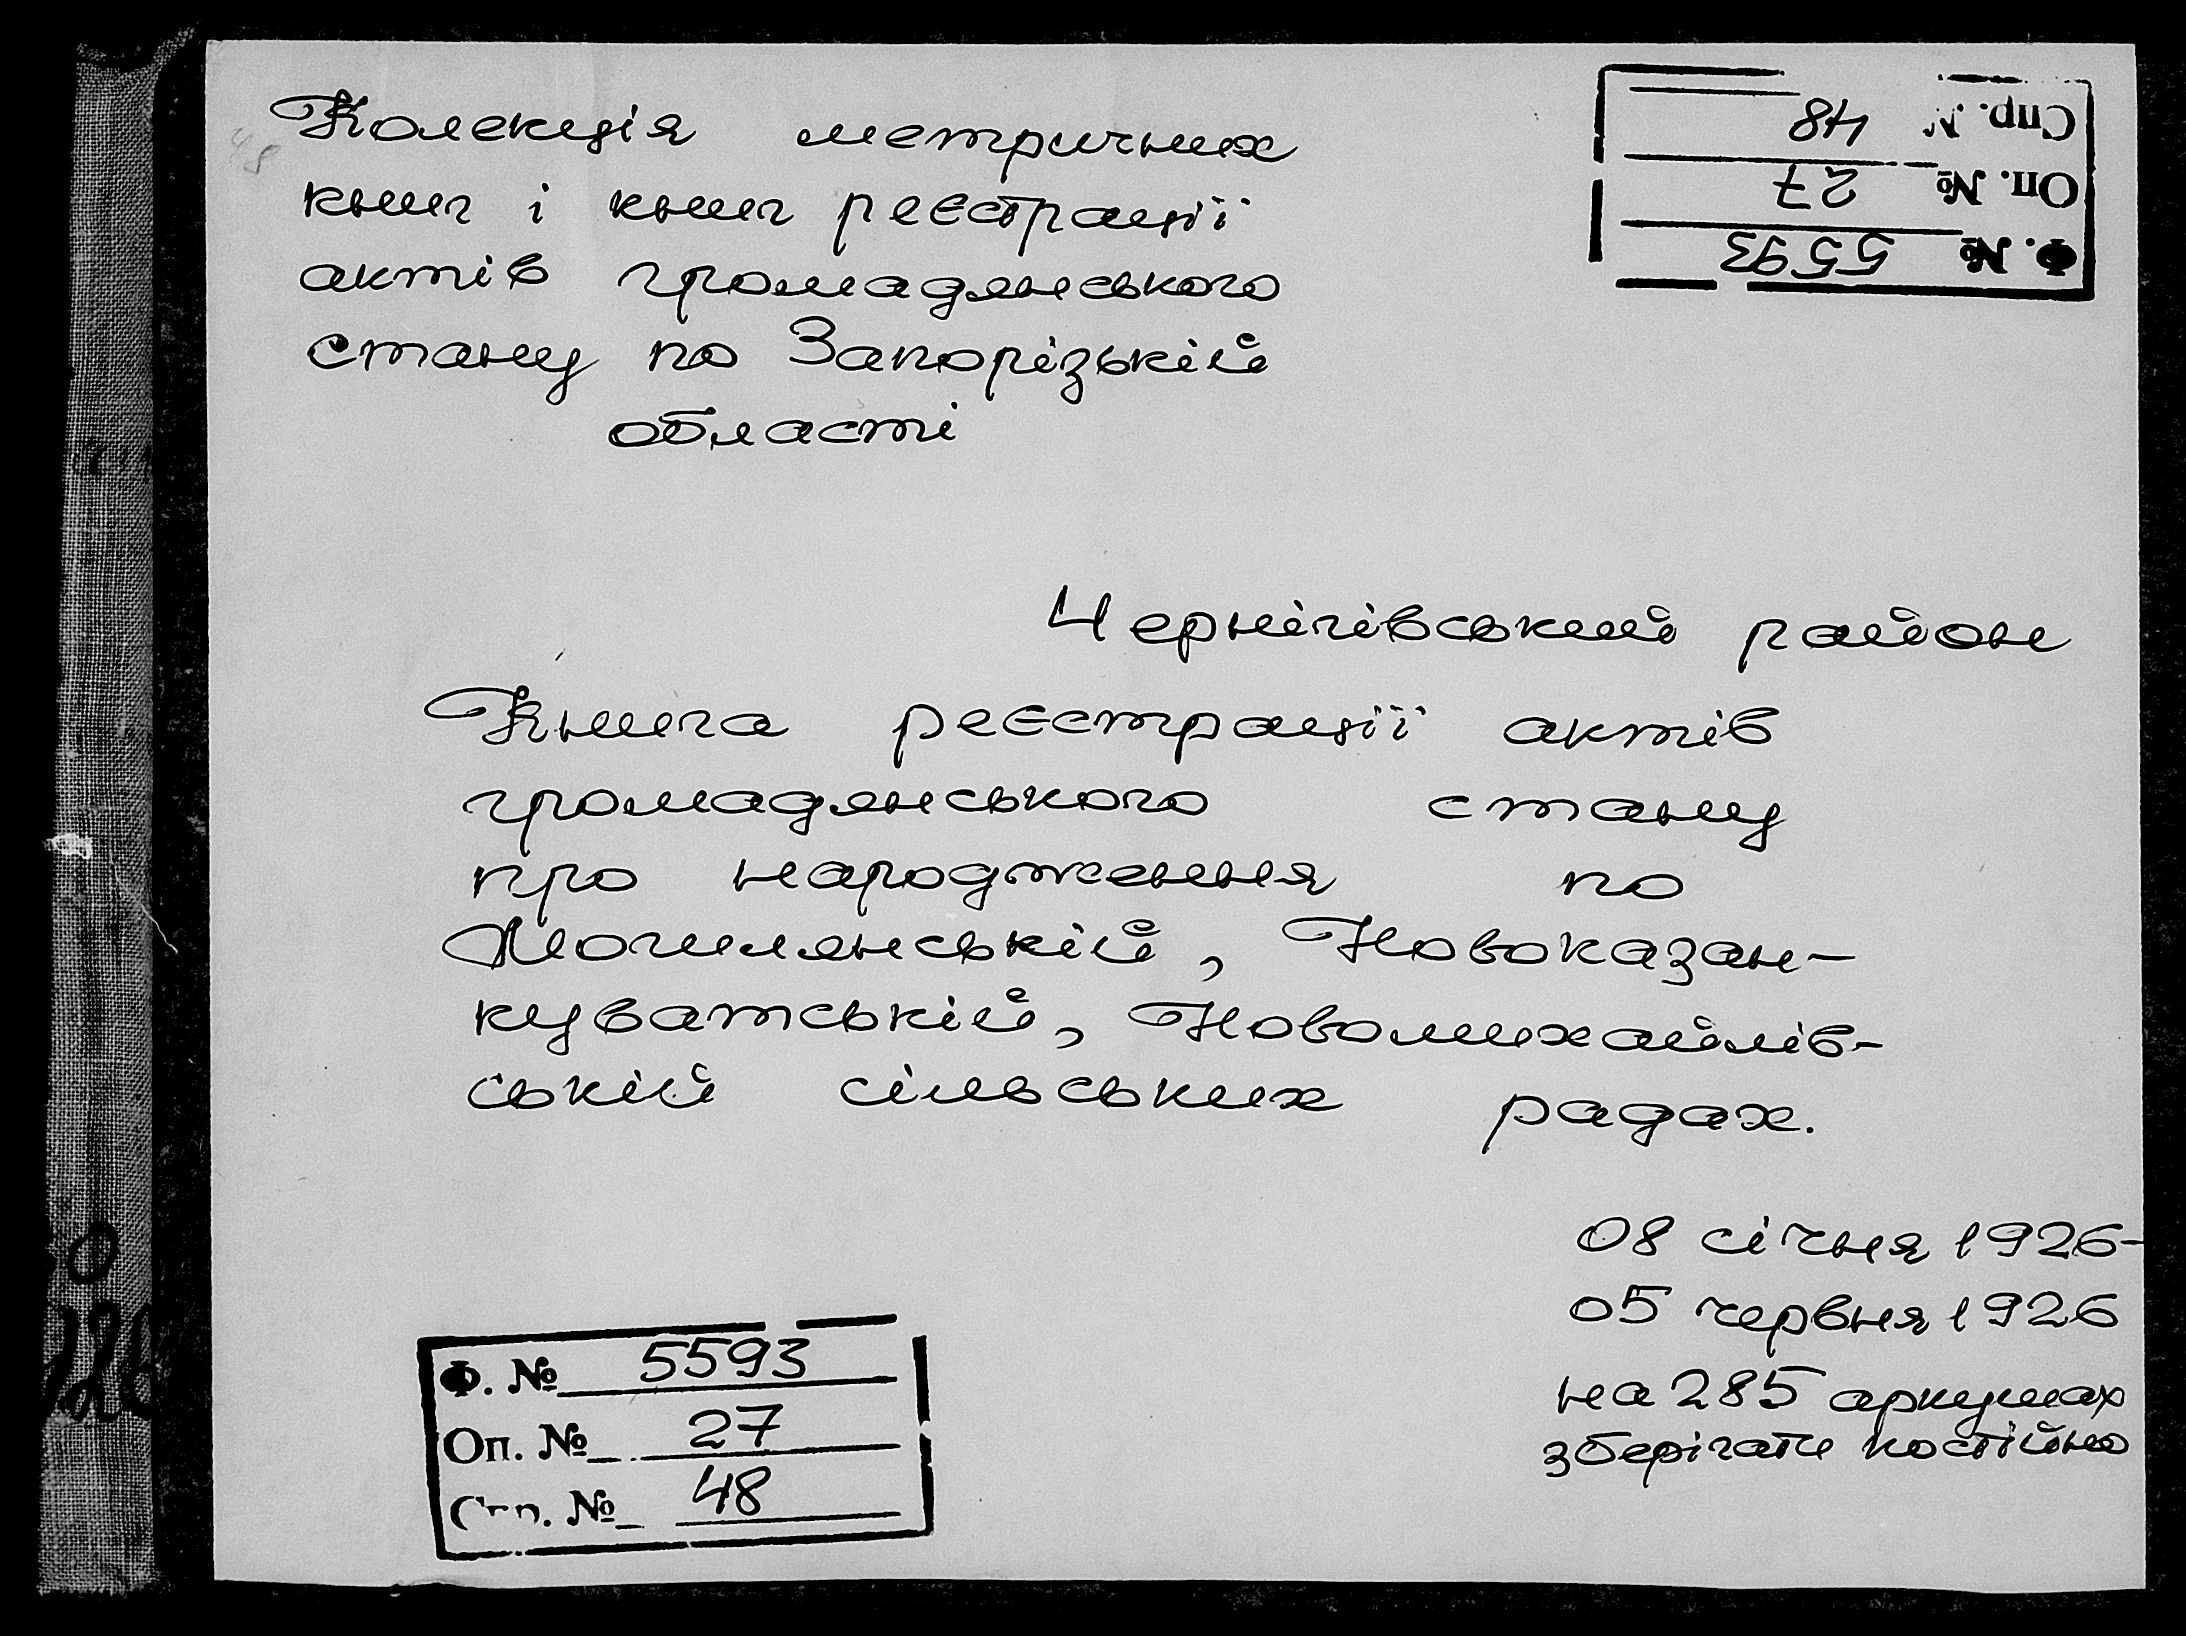 Колекція метричних
книг і книг реєстрації
актів громадянського
стану по Запорізькій
області
Ф. № 5593
Оп. № 27
Спр. № 48
Чернігівський район
Книга реєстрації актів
громадянського стану
про народження по
Могилянській, Новоказан-
куватській, Новомихайлів-
ській сільських радах.
08 січня 1926-
05 червня 1926
на 285 аркушах
зберігати постійно
Ф. № 5593
Оп. № 27
Спр. № 48